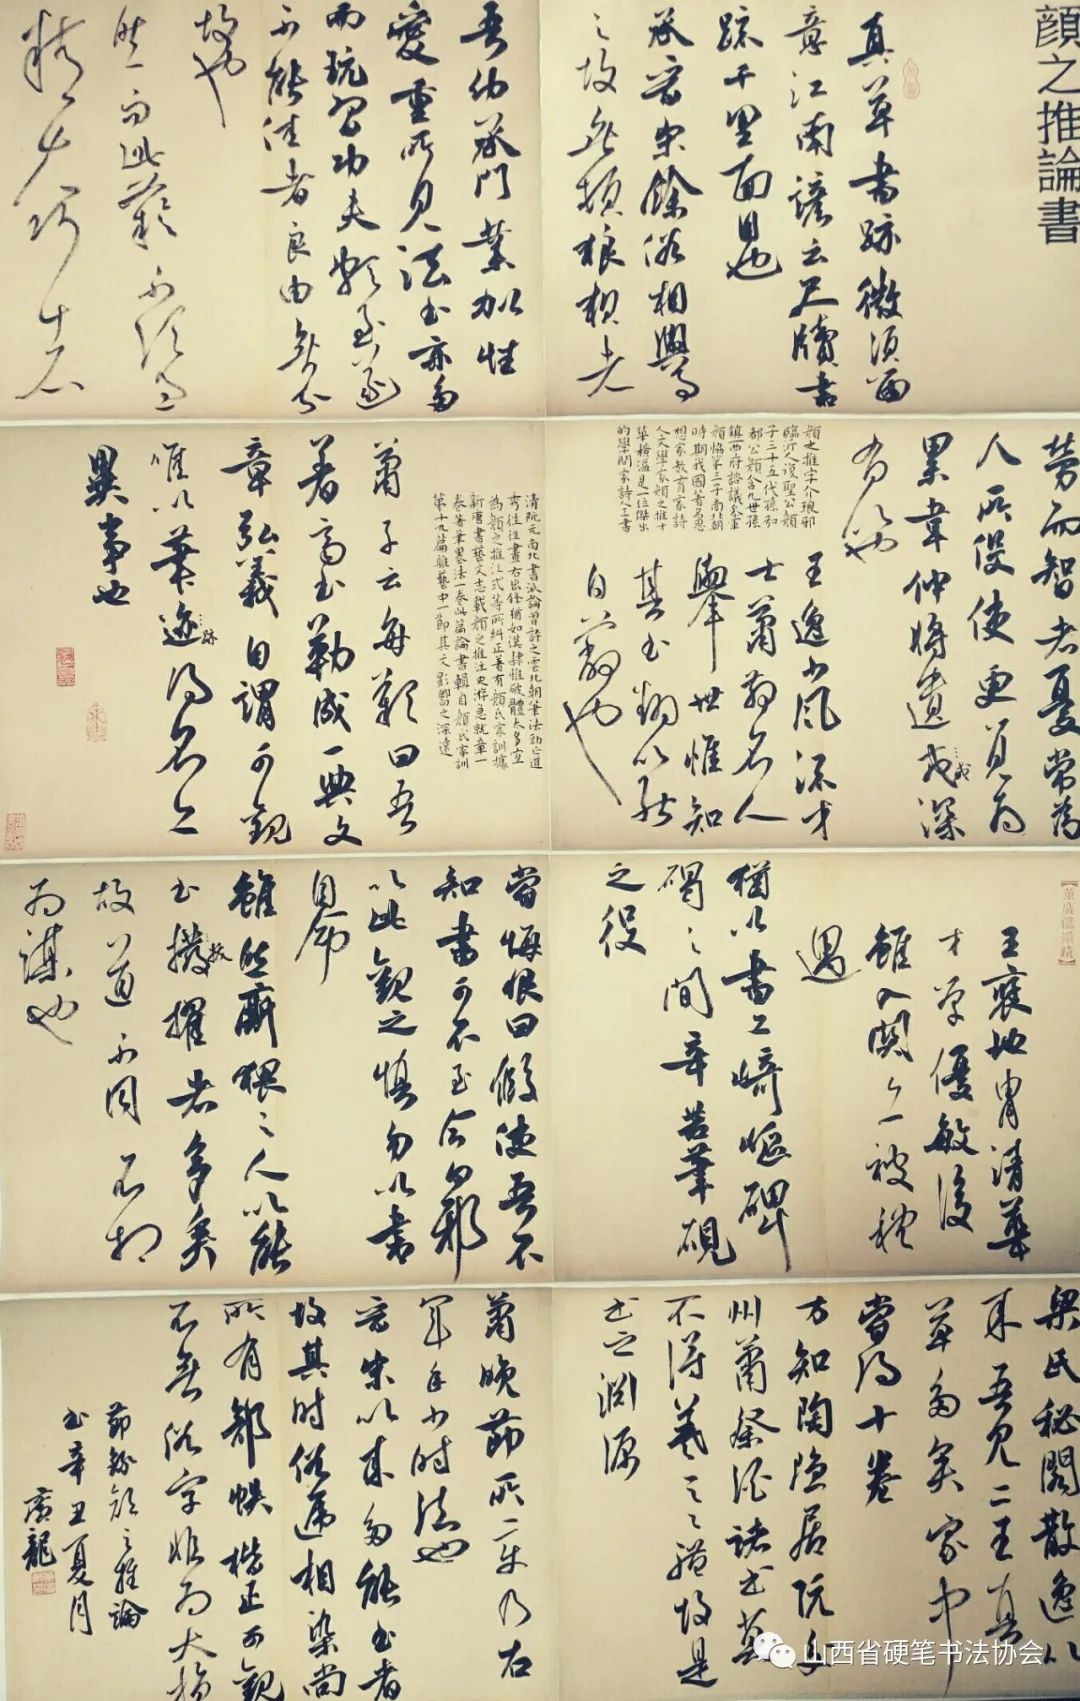 顔之推論書
真草書跡微須留
意江南諺云尺牘書
疏千里面目也
承晉宋餘俗相與事
之故無頓狼狽者
吾幼承門業加性
愛重所見法書亦多
而玩習功夫頗至遂
不能佳者良由無分
故也
然而此藝不須過
精夫巧者
勞而智者憂常為
人所役使更覺為
累韋仲將遺戒深
戒
有以也
顏之推字介琅邪
臨沂人復聖公顏
子三十五代孫和
都公顏含九世孫
鎮西府諮議參軍
顏協第三子南北朝
時期我國著名思
想家教育家詩
人文學家顏之推才
華橫溢是一位傑出
的學問家詩人書
王逸少風流才
士蕭散名人
舉世惟知
其書翻以能
自蔽也
清阮元南北書派論曾詩之雲北朝筆法勁正遒
秀往往畫石出鋒猶如漢隸惟破體太多宜
為顏之推江式等所糾正著有顏氏家訓據
新唐書藝文志載顏之推注史游急就章一
卷著筆墨法一卷此篇論書輯自顏氏家訓
第十九篇雜藝中一節其文影響之深遠
蕭子云每歎曰吾
著齊書勒成一典文
章弘義自謂可觀
唯以筆迹得名亦
跡
異事也
【董廣龍墨蹟】
王褒地胄清華
才學優敏後
雖入關亦被禮
遇
猶以書工崎嶇碑
碣之間辛苦筆硯
之役
嘗悔恨曰假使吾不
知書可不至今日邪
以此觀之慎勿以書
自命
雖然廝猥之人以能
書拔擢者多矣
故道不同不相
為謀也
梁氏秘閣散逸以
來吾見二王真
草多矣家中
嘗得十卷
方知陶隱居阮交
州蕭祭酒諸書莫
不得羲之之體故是
書之淵源
蕭晚節所變乃右
軍年少時法也
晉宋以來多能書者
故其時俗遞相染尚
所有部帙楷正可觀
不無俗字非為大損
節錄顏之推論
書辛丑夏月
廣龍
山西省硬笔书法协会